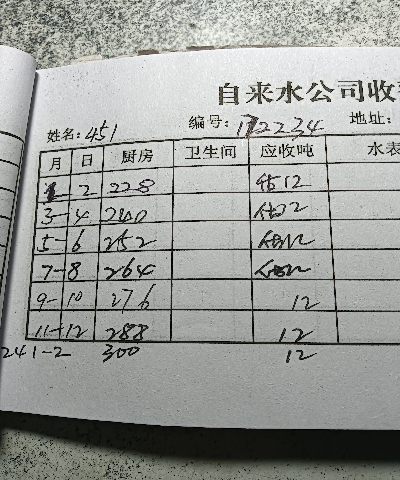 自来水公司收
姓名: 451 编号: 172234 地址:
月 日 厨房 卫生间 应收吨 水表
1 2 228 估12
3-4 240 估12
5-6 252 估12
7-8 264 估12
9-10 276 12
11-12 288 12
241-2 300 12